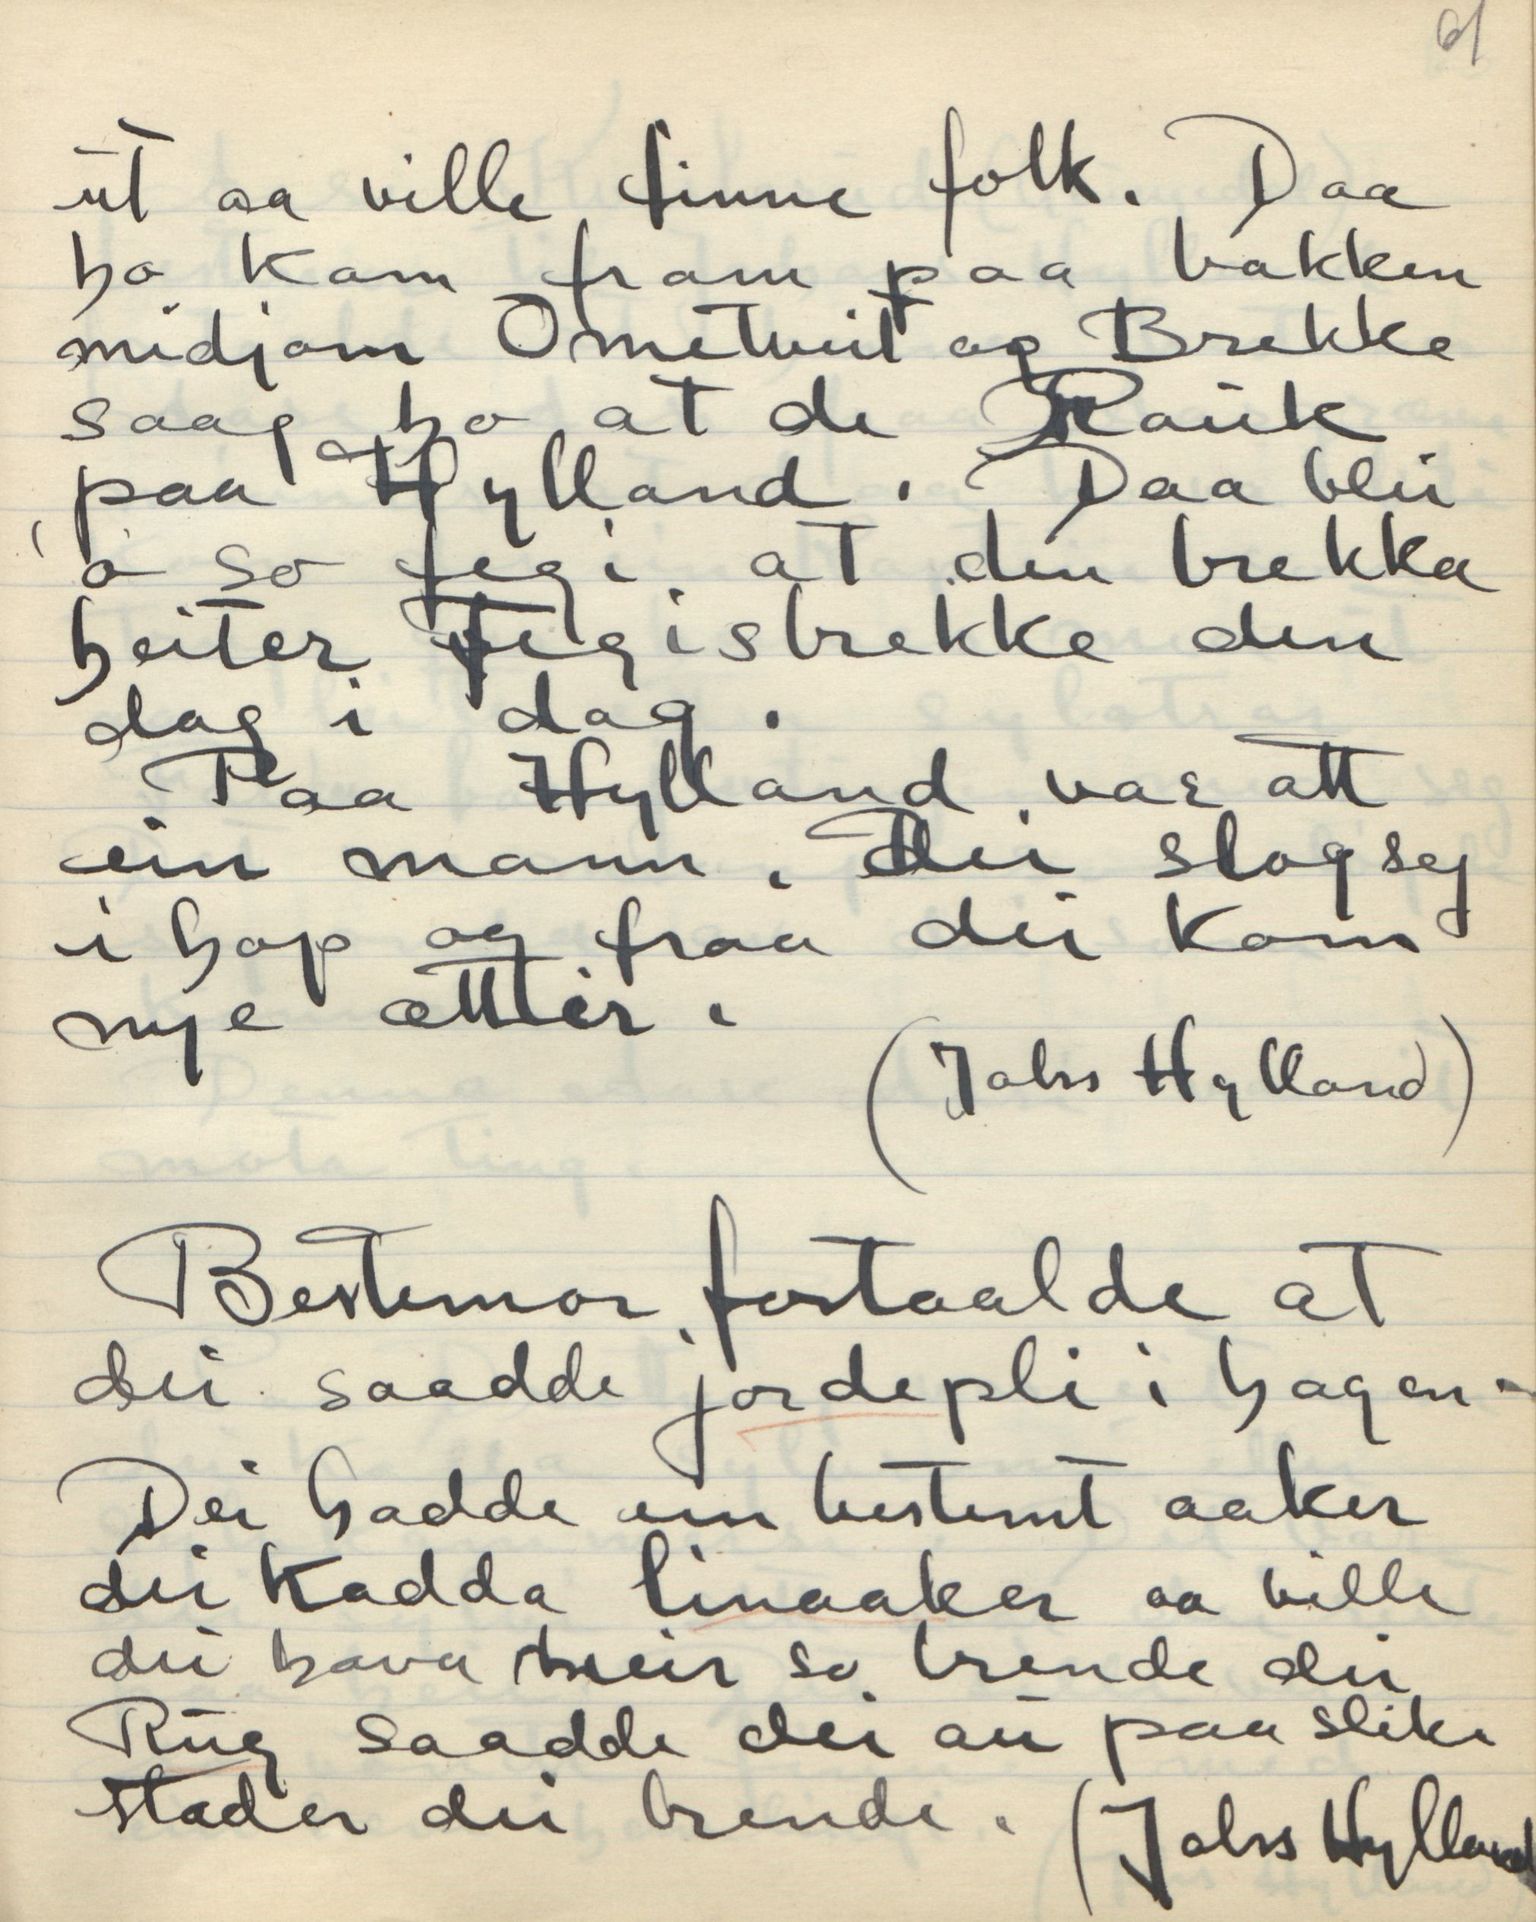 61
ut aa ville finne folk. Daa
ho kam fram paa bakken
midjom Ometveit og Brekke
saag ho at de Rauk
paa Hylland. Daa blei
o so fegi at den brekka
heiter Fegisbrekke den
dag i dag.
Paa Hylland var att
ein mann. Dei slog seg
i hop og fraa dei kom
nye ætter.
(Johs Hylland)
Bestemor fortaalde at
dei saadde jordepli i hagen.
Dei hadde ein bestemt aaker
dei kadda linaaker aa ville
dei hava meir so brende dei
Rug saadde dei au paa slike
stader dei brende. (Johs Hylland